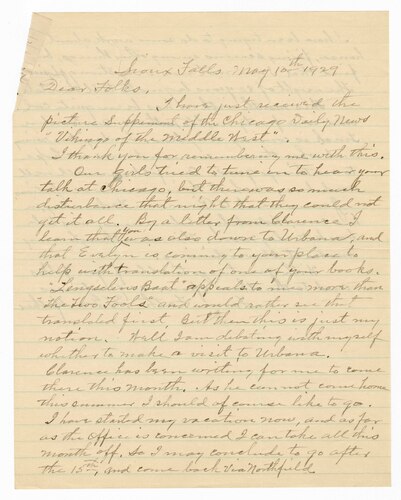 Sioux Falls May 10th 1929
Dear Folks,
I have just received the
picture supplement of the Chicago Daily News
"Vikings of the Middle West".
I thank you for remembering me with this.
Our Girls tried to tune in to hear your
talk at Chicago, but there was so much
disturbance that night that they could not
get it all. By a letter from Clarence I
learn that you was also down to Urbana, and
that Evelyn is coming to your place to
help with translation of one of your books.
Boat" appeals to me more than
"The Two Fools" and would rather see that
translated first. But then this is just my
notion. Well I am debating with myself
whether to make a visit to Urbana.
Clarence has been writing for me to come
there this month. As he can not come home
this summer I should of course like to go.
I have started my vacation now, and as far
as the Office is concerned I can take all this
month off. So I may conclude to go after
the 15th, and come back via Northfield.